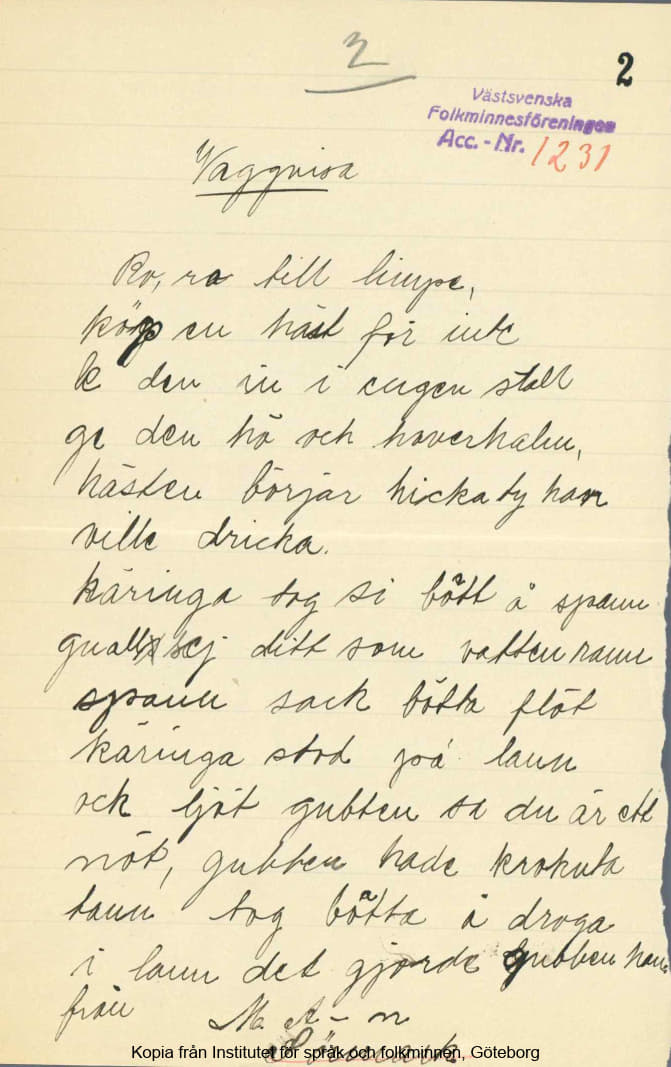 2
2
Västsvenska
Folkminnesföreningen
Acc.-Nr. 1231
Vaggvisa
Ro, ro till limpe,
köp en häst för inte
le den in i engen stall
ge den hö och haverhalm,
hästen börjar hicka ty han
ville dricka.
käringa tog si bött å spann
gnall sej ditt som vatten rann
spann sack bötta flöt
käringa stod på lann
och ljöt gubben sa du är ett
nöt, gubben hade krokuta
tann tog bötta å droga
i lann det gjorde gubben han
från M. A-n
Sörmark
Kopia från Institutet för språk och folkminnen, Göteborg